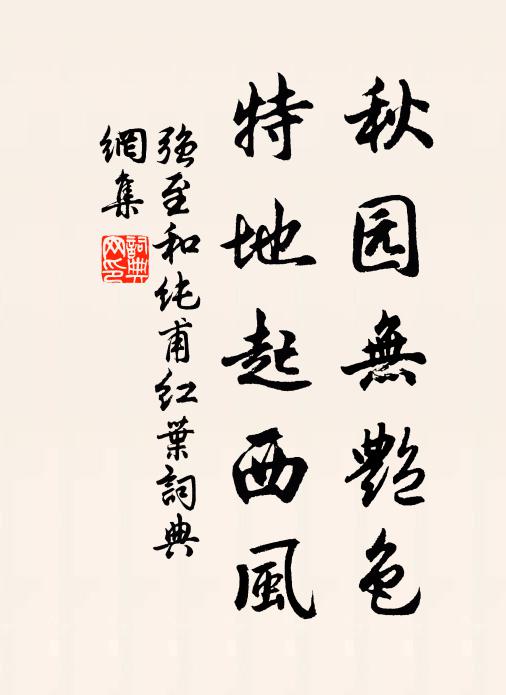 秋园無艶色
特地起西風
強至和纯甫红葉詞典
網集
詞典網印